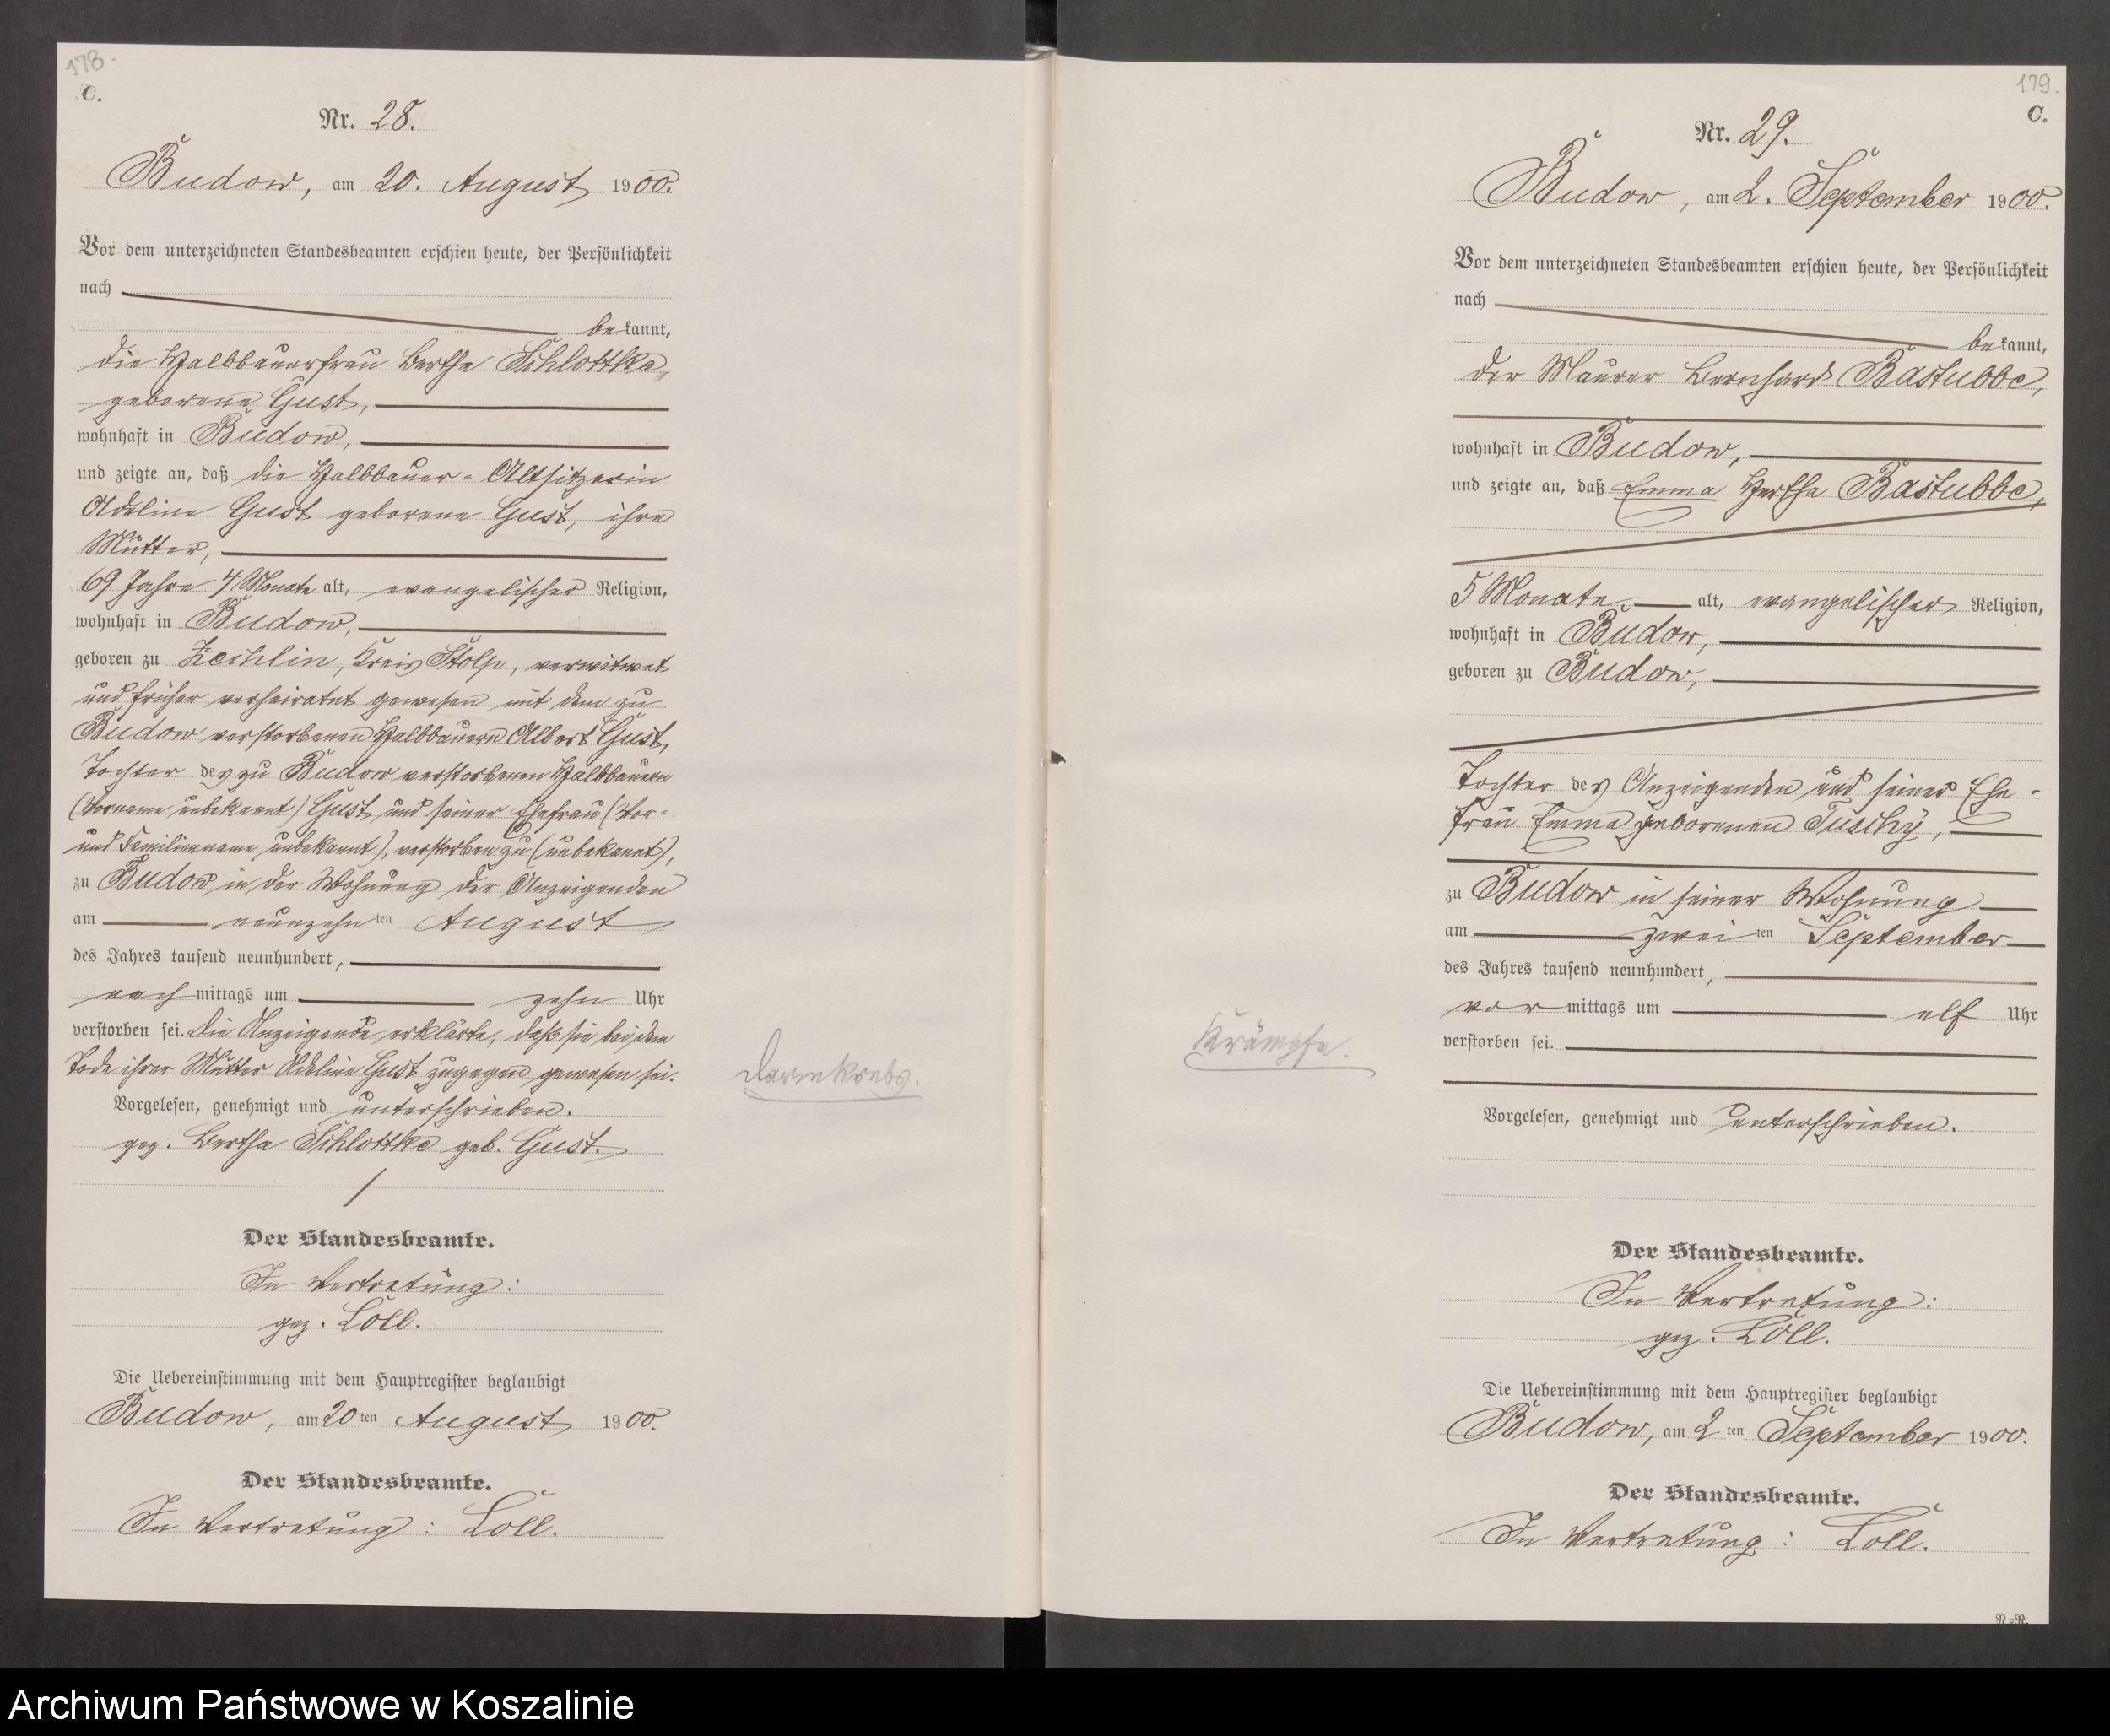 178.
C.
Nr. 28.
Budow, am 20. August 1900.
Vor dem unterzeichneten Standesbeamten erschien heute, der Persönlichkeit
nach
bekannt,
die Halbbauerfrau Bertha Schlottke,
geborene Gust,
wohnhaft in Budow,
und zeigte an, daß die Halbbauer-Altsitzerin
Adeline Gust geborene Gust, ihre
Mutter,
69 Jahre 4 Monate alt, evangelischer Religion,
wohnhaft in Budow,
geboren zu Zechlin, Kreis Stolp, verwitwet
und früher verheiratet gewesen mit dem zu
Budow verstorbenen Halbbauern Albert Gust,
Tochter des zu Budow verstorbenen Halbbauern
(Vorname unbekannt) Gust und seiner Ehefrau (Vor-
und Familienname unbekannt), verstorben zu (unbekannt),
zu Budow in der Wohnung der Anzeigenden
am neunzehnten August
des Jahres tausend neunhundert,
nachmittags um zehn Uhr
verstorben sei. Die Anzeigende erklärte, daß sie bei dem
Tode ihrer Mutter Adeline Gust zugegen gewesen sei.
Darmkrebs.
Vorgelesen, genehmigt und unterschrieben.
gez. Bertha Schlottke geb. Gust.
Der Standesbeamte.
In Vertretung:
gez. Loll.
Die Uebereinstimmung mit dem Hauptregister beglaubigt
Budow, am 20ten August 1900.
Der Standesbeamte.
In Vertretung: Loll.
179.
C.
Nr. 29.
Budow, am 2. September 1900.
Vor dem unterzeichneten Standesbeamten erschien heute, der Persönlichkeit
nach
bekannt,
der Maurer Bernhard Bastubbe,
wohnhaft in Budow,
und zeigte an, daß Emma Hertha Bastubbe,
5 Monate alt, evangelischer Religion,
wohnhaft in Budow,
geboren zu Budow,
Tochter des Anzeigenden und seiner Ehe-
frau Emma geborenen Tuschy,
zu Budow in seiner Wohnung
am zweiten September
des Jahres tausend neunhundert,
vormittags um elf Uhr
verstorben sei.
Krämpfe.
Vorgelesen, genehmigt und unterschrieben.
Der Standesbeamte.
In Vertretung:
gez. Loll.
Die Uebereinstimmung mit dem Hauptregister beglaubigt
Budow, am 2ten September 1900.
Der Standesbeamte.
In Vertretung: Loll.
N.-R.
Archiwum Państwowe w Koszalinie